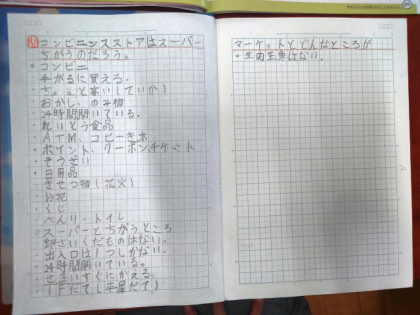 コンビニンスストアはスーパー
ちがうのだろう。
・コンビニ
・手がるに買える。
・ちょっと高い(ていか)
・おかし、のみ物
・24時間開いている。
・れいとう食品
・ATM、コピーきき
・ポイント、クーポンチケット
・そうざい
・日用品
・きせつ物(花火)
・お花
・くじ
・べんり・トイレ
◎スーパーとちがうところ
・野さいくだものはない。
・出入口は1つしかない。
・24時間開いている。
・せまいすぐにかえる。
・1Fにて(平屋だて)
マーケットとどんなところが
・生肉生魚はない。